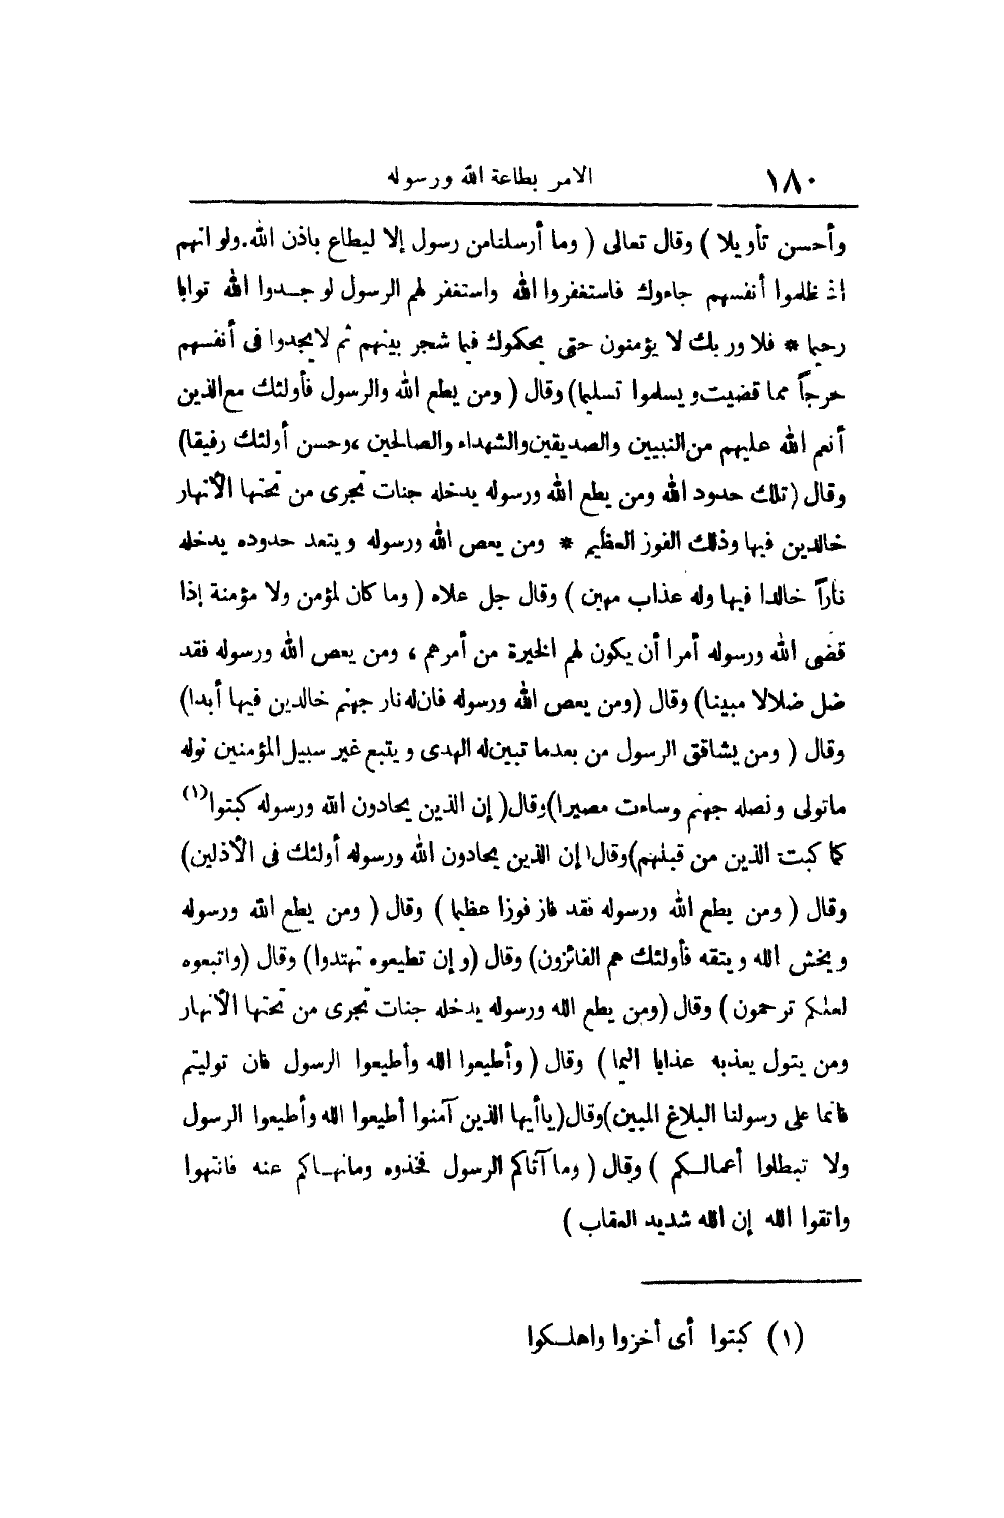 ١٨٠ الامر بطاعة الله ورسوله
وأحسن تأويلا ) وقال تعالى ( وما أرسلنا من رسول إلا ليطاع باذن الله.ولو انهم
اذ ظلموا أنفسهم جاءوك فاستغفروا الله واستغفر لهم الرسول لوجـدوا الله توابا
رحيما * فلا وربك لا يؤمنون حتى يحكموك فيما شجر بينهم ثم لا يجدوا فى أنفسهم
حرجاً مما قضيت ويسلموا تسليما) وقال ( ومن يطع الله والرسول فأولئك مع الذين
أنعم الله عليهم من النبيين والصديقين والشهداء والصالحين ،وحسن أولئك رفيقا)
وقال (تلك حدود الله ومن يطع الله ورسوله يدخله جنات تجرى من تحتها الأنهار
خالدين فيها وذلك الفوز العظيم * ومن يعص الله ورسوله ويتعد حدوده يدخله
ناراً خالدا فيها وله عذاب مهين ) وقال جل علاه ( وما كان لمؤمن ولا مؤمنة إذا
قضى الله ورسوله أمرا أن يكون لهم الخيرة من أمرهم ، ومن يعص الله ورسوله فقد
ضل ضلالا مبينا) وقال (ومن يعص الله ورسوله فان له نار جهنم خالدين فيها أبدا)
وقال ( ومن يشاقق الرسول من بعد ما تبين له الهدى ويتبع غير سبيل المؤمنين نوله
ماتولى ونصله جهنم وساءت مصيرا)وقال( إن الذين يحادون الله ورسوله كبتوا(١)
كما كبت الذين من قبلهم)وقال( إن الذين يحادون الله ورسوله أولئك فى الأذلين)
وقال ( ومن يطع الله ورسوله فقد فاز فوزا عظيما ) وقال ( ومن يطع الله ورسوله
ويخش الله ويتقه فأولئك هم الفائزون) وقال (وإن تطيعوه تهتدوا) وقال (واتبعوه
لعلكم ترحمون ) وقال (ومن يطع الله ورسوله يدخله جنات تجرى من تحتها الأنهار
ومن يتول يعذبه عذابا اليما ) وقال ( وأطيعوا الله وأطيعوا الرسول فان توليتم
فانما على رسولنا البلاغ المبين)وقال(ياأيها الذين آمنوا أطيعوا الله وأطيعوا الرسول
ولا تبطلوا أعمالـكم ) وقال ( وما آتاكم الرسول فخذوه ومانهـاكم عنه فانتهوا
واتقوا الله إن الله شديد العقاب )
(١) كبتوا أى أخزوا واهلـكوا